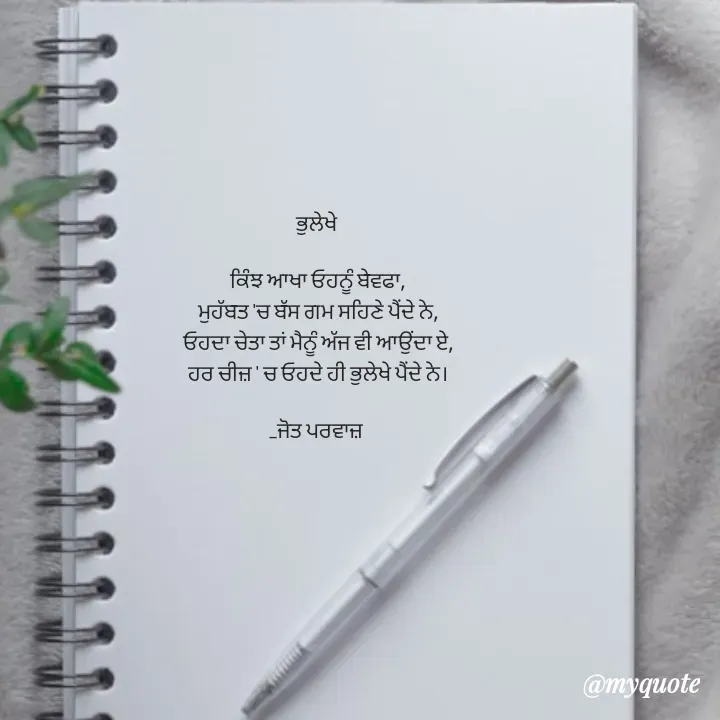 ਭੁਲੇਖੇ
ਕਿੰਝ ਆਖਾ ਓਹਨੂੰ ਬੇਵਫਾ,
ਮੁਹੱਬਤ 'ਚ ਬੱਸ ਗਮ ਸਹਿਣੇ ਪੈਂਦੇ ਨੇ,
ਓਹਦਾ ਚੇਤਾ ਤਾਂ ਮੈਨੂੰ ਅੱਜ ਵੀ ਆਉਂਦਾ ਏ,
ਹਰ ਚੀਜ਼ ' ਚ ਓਹਦੇ ਹੀ ਭੁਲੇਖੇ ਪੈਂਦੇ ਨੇ।
_ਜੋਤ ਪਰਵਾਜ਼
@myquote